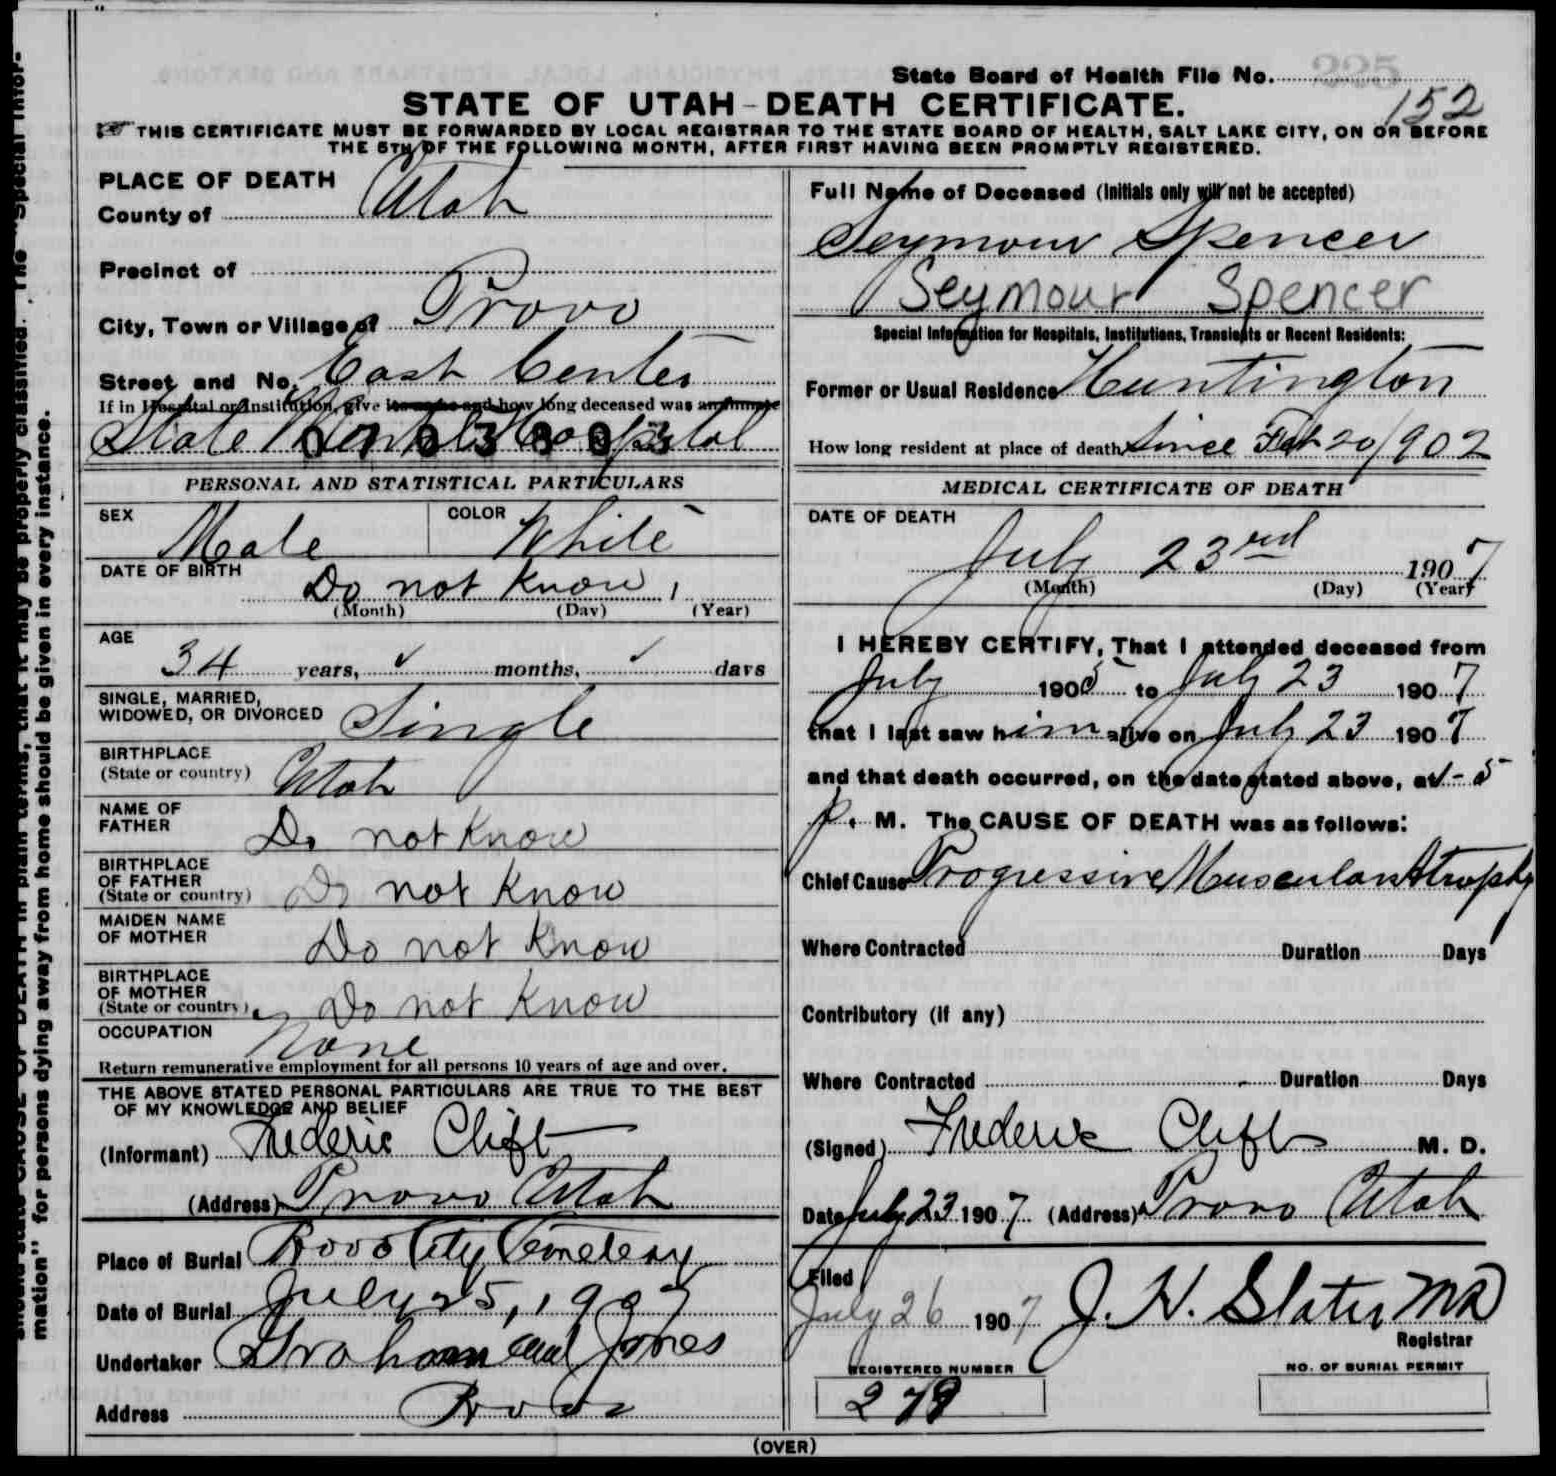 State Board of Health File No. 225
152
STATE OF UTAH - DEATH CERTIFICATE.
THIS CERTIFICATE MUST BE FORWARDED BY LOCAL REGISTRAR TO THE STATE BOARD OF HEALTH, SALT LAKE CITY, ON OR BEFORE
THE 5TH OF THE FOLLOWING MONTH, AFTER FIRST HAVING BEEN PROMPTLY REGISTERED.
PLACE OF DEATH
County of Utah
Precinct of
City, Town or Village of Provo
Street and No. East Center
If in Hospital or Institution, give its name and how long deceased was an inmate
State Mental Hospital
0703803
PERSONAL AND STATISTICAL PARTICULARS
SEX Male COLOR White
DATE OF BIRTH Do not know, 1
(Month) (Day) (Year)
AGE
34 years, ✓ months, ✓ days
SINGLE, MARRIED,
WIDOWED, OR DIVORCED Single
BIRTHPLACE
(State or country) Utah
NAME OF
FATHER Do not Know
BIRTHPLACE
OF FATHER
(State or country) Do not Know
MAIDEN NAME
OF MOTHER Do not Know
BIRTHPLACE
OF MOTHER
(State or country) Do not Know
OCCUPATION None
Return remunerative employment for all persons 10 years of age and over.
THE ABOVE STATED PERSONAL PARTICULARS ARE TRUE TO THE BEST
OF MY KNOWLEDGE AND BELIEF
(Informant) Frederic Clift
(Address) Provo Utah
Place of Burial Provo City Cemetery
Date of Burial July 25, 1907
Undertaker Graham and Jones
Address Provo
Full Name of Deceased (Initials only will not be accepted)
Seymour Spencer
Seymour Spencer
Special Information for Hospitals, Institutions, Transients or Recent Residents:
Former or Usual Residence Huntington
How long resident at place of death Since Feb 20/902
MEDICAL CERTIFICATE OF DEATH
DATE OF DEATH
July 23rd 1907
(Month) (Day) (Year)
I HEREBY CERTIFY, That I attended deceased from
July 1905 to July 23 1907
that I last saw him alive on July 23 1907
and that death occurred, on the date stated above, at 1-5
p. M. The CAUSE OF DEATH was as follows:
Chief Cause Progressive Muscular Atrophy
Where Contracted Duration Days
Contributory (if any)
Where Contracted Duration Days
(Signed) Frederic Clift M. D.
Date July 23 1907 (Address) Provo Utah
Filed
July 26 1907 J. W. Slater MD
Registrar
REGISTERED NUMBER NO. OF BURIAL PERMIT
279
(OVER)
mation" for persons dying away from home should be given in every instance.
should state CAUSE OF DEATH in plain terms, that it may be properly classified. The "Special Infor-